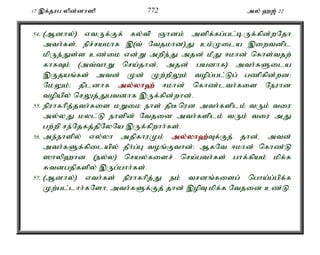 17 இக்தரப லின்னாஸி 772 அல் ஹஜ் 22
54. (ஆனால்) எவருக்குக் கல்வி ஞானம் அளிக்கப்பட்டிருக்கின்றதோ
அவர்கள், நிச்சயமாக இ(வ் வேதமான)து உம்முடைய இறைவனிட
மிருந்துள்ள உண்மை என்று அறிந்து அதன் மீது ஈமான் கொள்வதற்
காகவும் (அவ்வாறு செய்தான், அதன் பயனாக) அவர்களுடைய
இருதயங்கள் அவன் முன் முற்றிலும் வழிப்பட்டுப் பணிகின்றன;
மேலும்; திடனாக அல்லாஹ் ஈமான் கொண்டவர்களை நேரான
வழியில் செலுத்துபவனாக இருக்கின்றான்.
55. நிராகரித்தவர்களை மறுமை நாள் திடீரென அவர்களிடம் வரும் வரை
அல்லது மலட்டு நாளின் வேதனை அவர்களிடம் வரும் வரை அது
பற்றி சந்தேகத்திலேயே இருக்கிறார்கள்.
56. அந்நாளில் எல்லா அதிகாரமும் அல்லாஹ்வுக்குத் தான், அவன்
அவர்களுக்கிடையில் தீர்ப்பு வழங்குவான்; ஆகவே ஈமான் கொண்டு
ஸாலிஹான (நல்ல) செயல்களைச் செய்பவர்கள் பாக்கியம் மிக்க
சுவனபதிகளில் இருப்பார்கள்.
57. (ஆனால்) எவர்கள் நிராகரித்து நம் வசனங்களைப் பொய்ப்பிக்க
முற்பட்டார்களோ, அவர்களுக்குத் தான் இழிவு மிக்க வேதனை உண்டு.